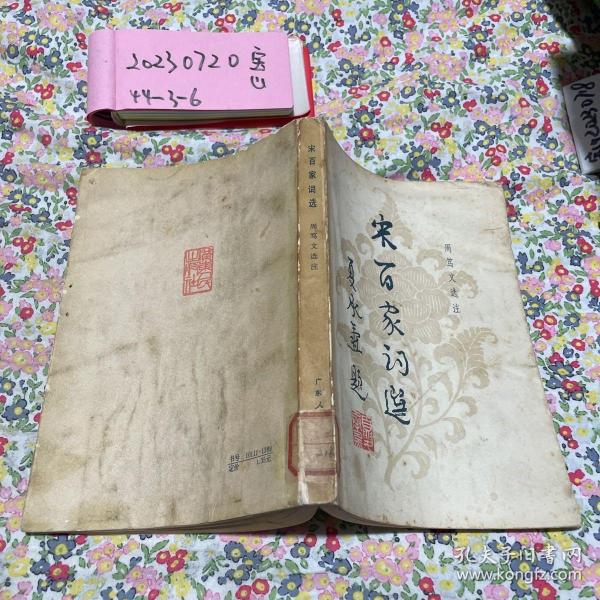 20230720
44-3-6
宋百家词选
周笃文选注
广东人
宋百家词選
夏承焘題
周笃文选注
书号：10111·1389
定价 1.35元
孔夫子旧书网
www.kongfz.com